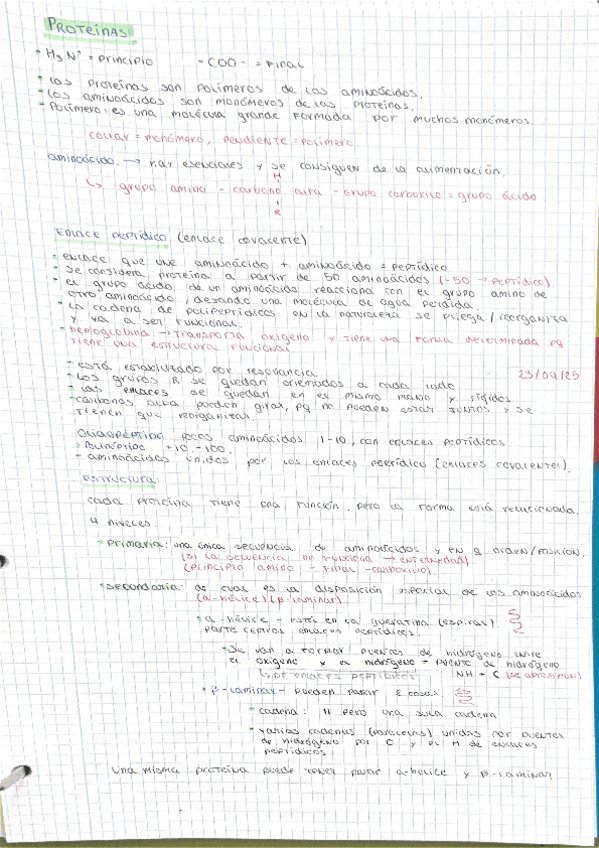 PROTEÍNAS
- H₃N⁺ = principio -COO- = Final
- Las proteínas son polímeros de los aminoácidos.
- Los aminoácidos son monómeros de las proteínas.
- Polímero: es una molécula grande formada por muchos monómeros.
collar = monómero, pendiente = polímero.
aminoácido. → hay esenciales y se consiguen de la alimentación.
H
↳ grupo amino - carbono alfa - grupo carboxilo = grupo ácido
R
Enlace peptídico (enlace covalente)
- enlace que une aminoácido + aminoácido = peptídico
- se considera proteína a partir de 50 aminoácidos (-50 → peptídico)
- el grupo ácido de un aminoácido reacciona con el grupo amino de
otro aminoácido, dejando una molécula de agua perdida.
- La cadena de polipeptídicos en la naturaleza se pliega/reorganiza
y va a ser funcional.
- hemoglobina → transporta oxígeno y tiene una forma determinada pq
tiene una estructura funcional
23/09/25
- está estabilizado por resonancia
- Los grupos R se quedan orientados a cada lado
- Los enlaces se quedan en el mismo plano y rígidos
- carbonos alfa pueden girar, pq no pueden estar juntos y se
tienen que reorganizar
Oligopéptido pocos aminoácidos 1-10, con enlaces peptídicos
- Polipéptido +10 -100.
- aminoácidos unidos por los enlaces peptídico (enlaces covalentes).
Estructura:
cada proteína tiene una función, pero la forma está relacionada.
4 niveles:
- primaria: una única secuencia de aminoácidos y en q orden/posición.
(si la secuencia → enfermedad)
(principio amino - final -carboxilo)
- secundaria: es la disposición espacial de los aminoácidos
(α-hélice) (β-laminar)
- α-hélice - está en la queratina (espiral).
parte enlaces peptídicos.
- Se van a formar puentes de hidrógeno entre
el oxígeno y el hidrógeno = puente de hidrógeno
↳ de enlaces peptídicos NH + C (se aproximan)
- β-laminar - pueden pasar 2 cosas:
- cadena: pero una sola cadena
- varias cadenas (paralelas) unidas por puentes
de hidrógeno por C y el H de enlaces
peptídicos
Una misma proteína puede tener α-hélice y β-laminar